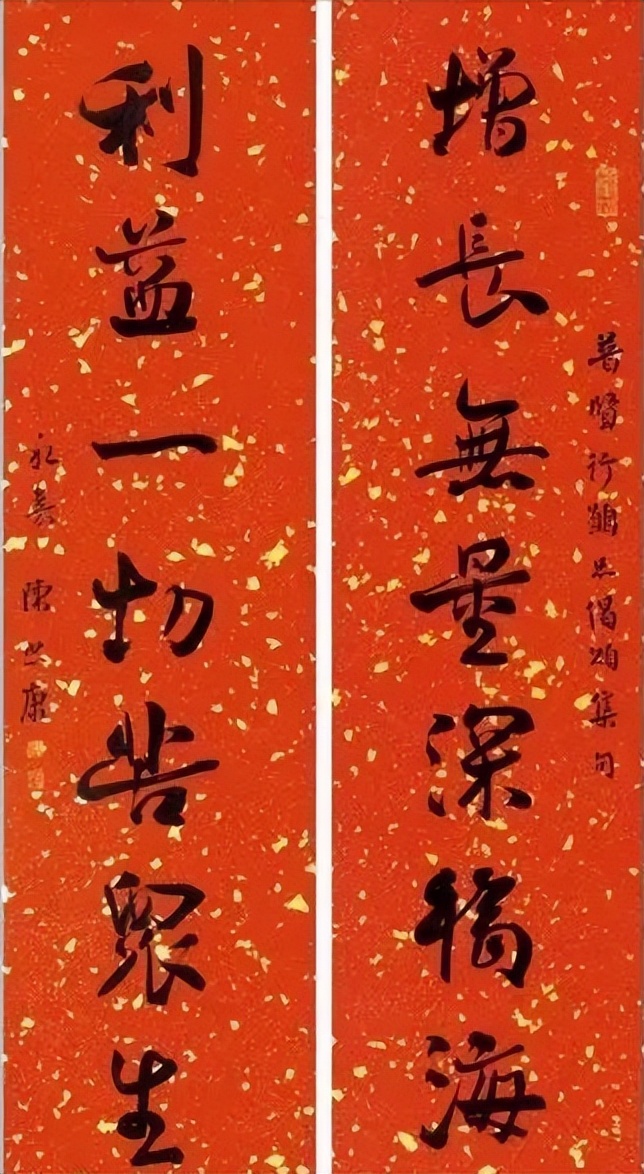 增長無量深福海
普賢行願品偈頌集句
利益一切苦眾生
永嘉 陳忠康